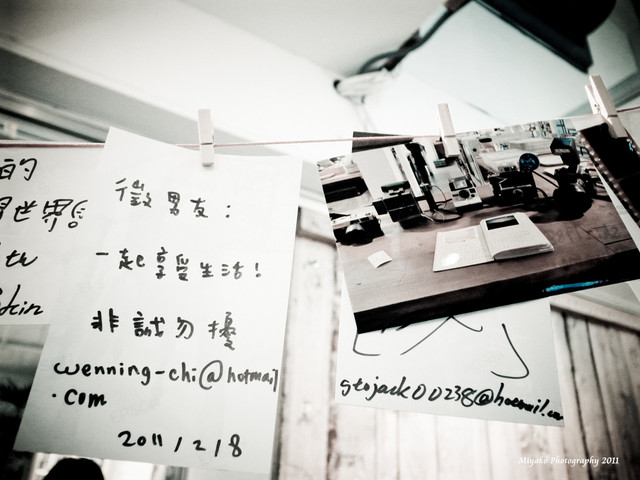 的
世界
徵男友：
一起享受生活！
非誠勿擾
wenning-chi@hotmail
.com
2011/2/8
gtojack00238@hotmail.com
Miyako Photography 2011